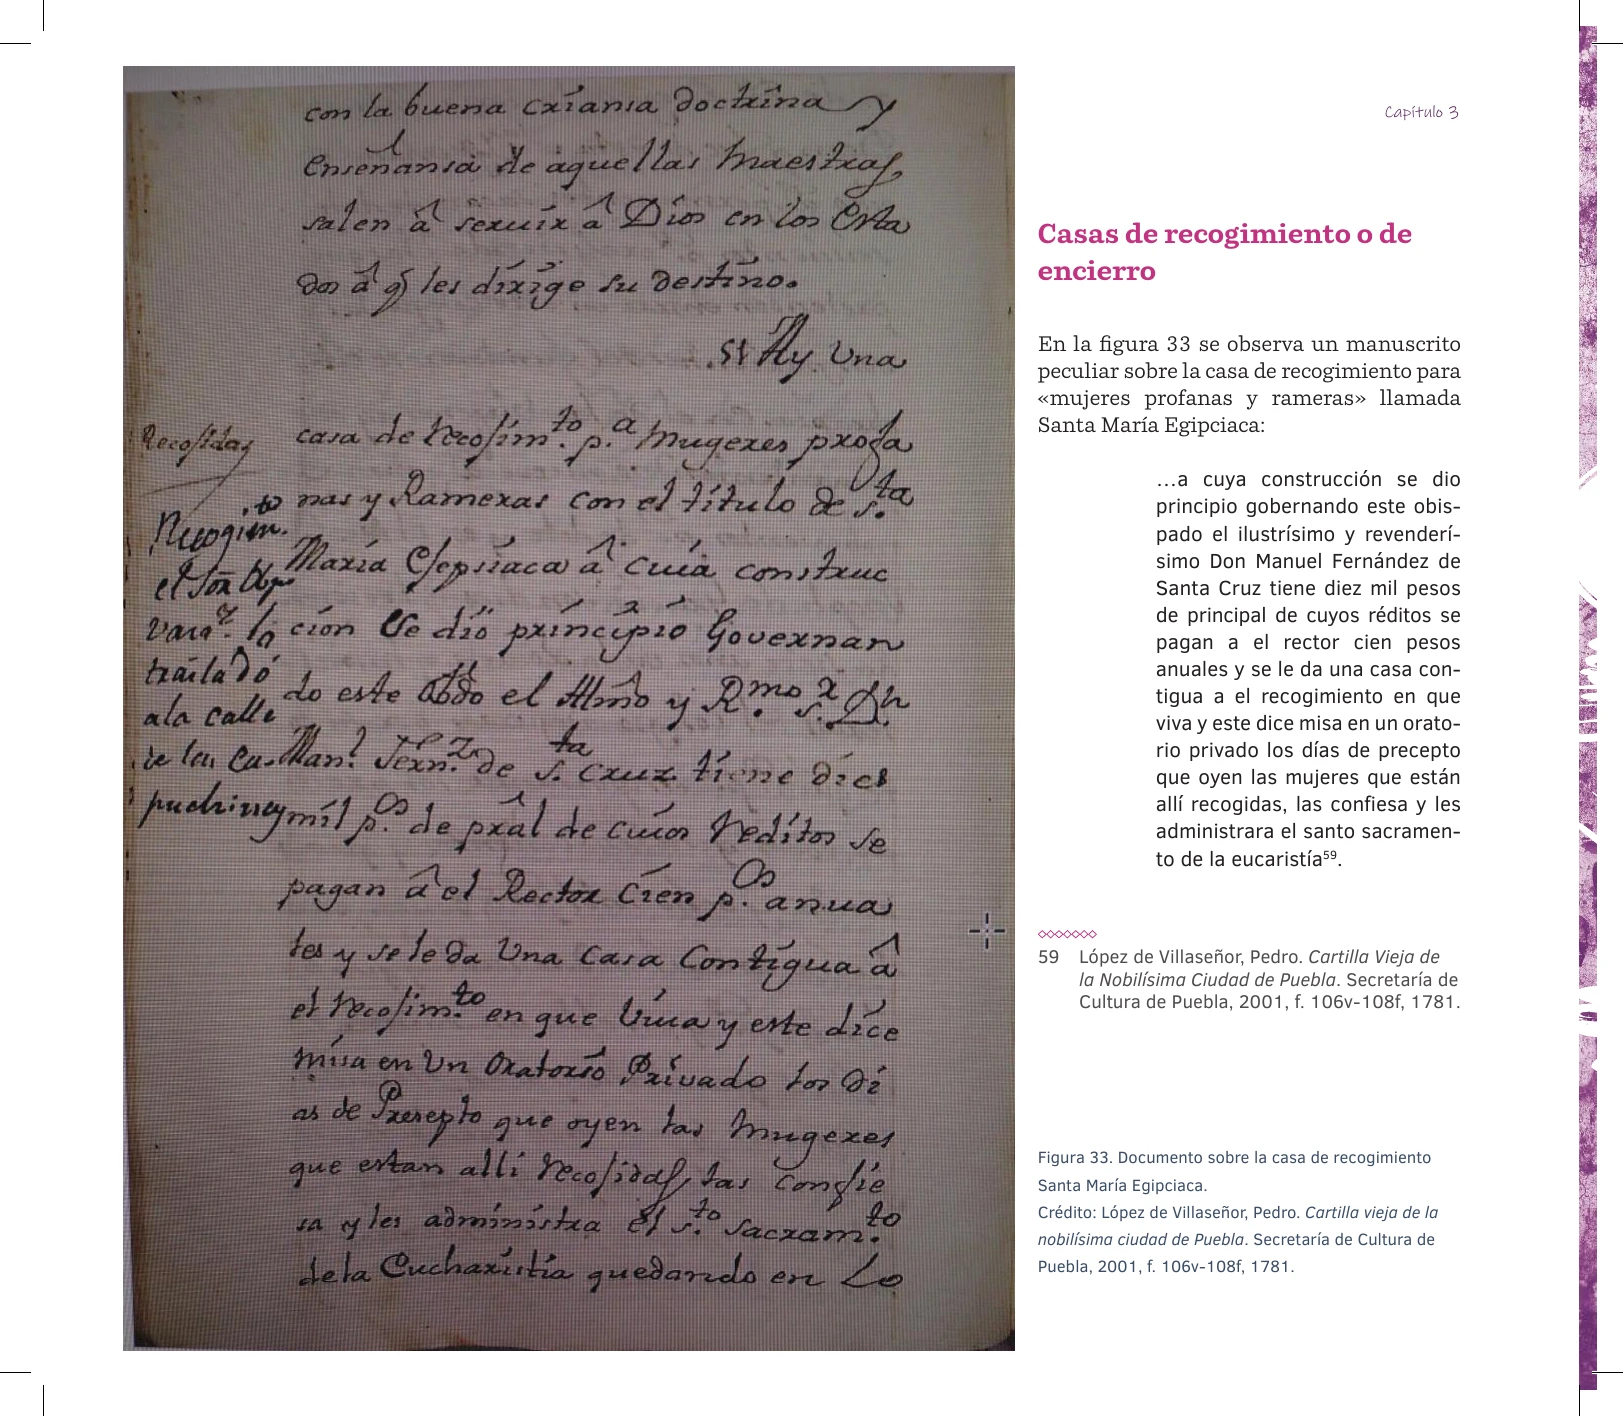 con la buena crianza doctrina y
Enseñansa de aquellas Maestras,
salen â servir â Dios en los Esta
dos â q̃ les dirige su destino.
51 Ay Una
Recosidas
casa de recosim.to p.a Mugeres profa
nas y Rameras con el titulo de S.ta
Maria Egipsiaca â cuia construc
cion Se dió principio Governan
do este Obpdo el Illmo y R.mo S.r Dn
Man.l Fern.z de S.ta Cruz tiene dies
mil p.os de pral de cuios reditos se
pagan â el Rector Cien p.os anua
les y se le da Una Casa Contigua â
el recosim.to en que Viva y este dice
misa en Un Oratorio Privado los di
as de Presepto que oyen las Mugeres
que estan alli recosidas, las Confie
sa y les administra el S.to Sacram.to
de la Eucharistia quedando en Lo
Recogim.to
el Sor
lo
trasladó
a la calle
de las Ca-
puchinas
Capítulo 3
Casas de recogimiento o de
encierro
En la figura 33 se observa un manuscrito
peculiar sobre la casa de recogimiento para
«mujeres profanas y rameras» llamada
Santa María Egipciaca:
…a cuya construcción se dio
principio gobernando este obis-
pado el ilustrísimo y revenderí-
simo Don Manuel Fernández de
Santa Cruz tiene diez mil pesos
de principal de cuyos réditos se
pagan a el rector cien pesos
anuales y se le da una casa con-
tigua a el recogimiento en que
viva y este dice misa en un orato-
rio privado los días de precepto
que oyen las mujeres que están
allí recogidas, las confiesa y les
administrara el santo sacramen-
to de la eucaristía⁵⁹.
59 López de Villaseñor, Pedro. Cartilla Vieja de
la Nobilísima Ciudad de Puebla. Secretaría de
Cultura de Puebla, 2001, f. 106v-108f, 1781.
Figura 33. Documento sobre la casa de recogimiento
Santa María Egipciaca.
Crédito: López de Villaseñor, Pedro. Cartilla vieja de la
nobilísima ciudad de Puebla. Secretaría de Cultura de
Puebla, 2001, f. 106v-108f, 1781.